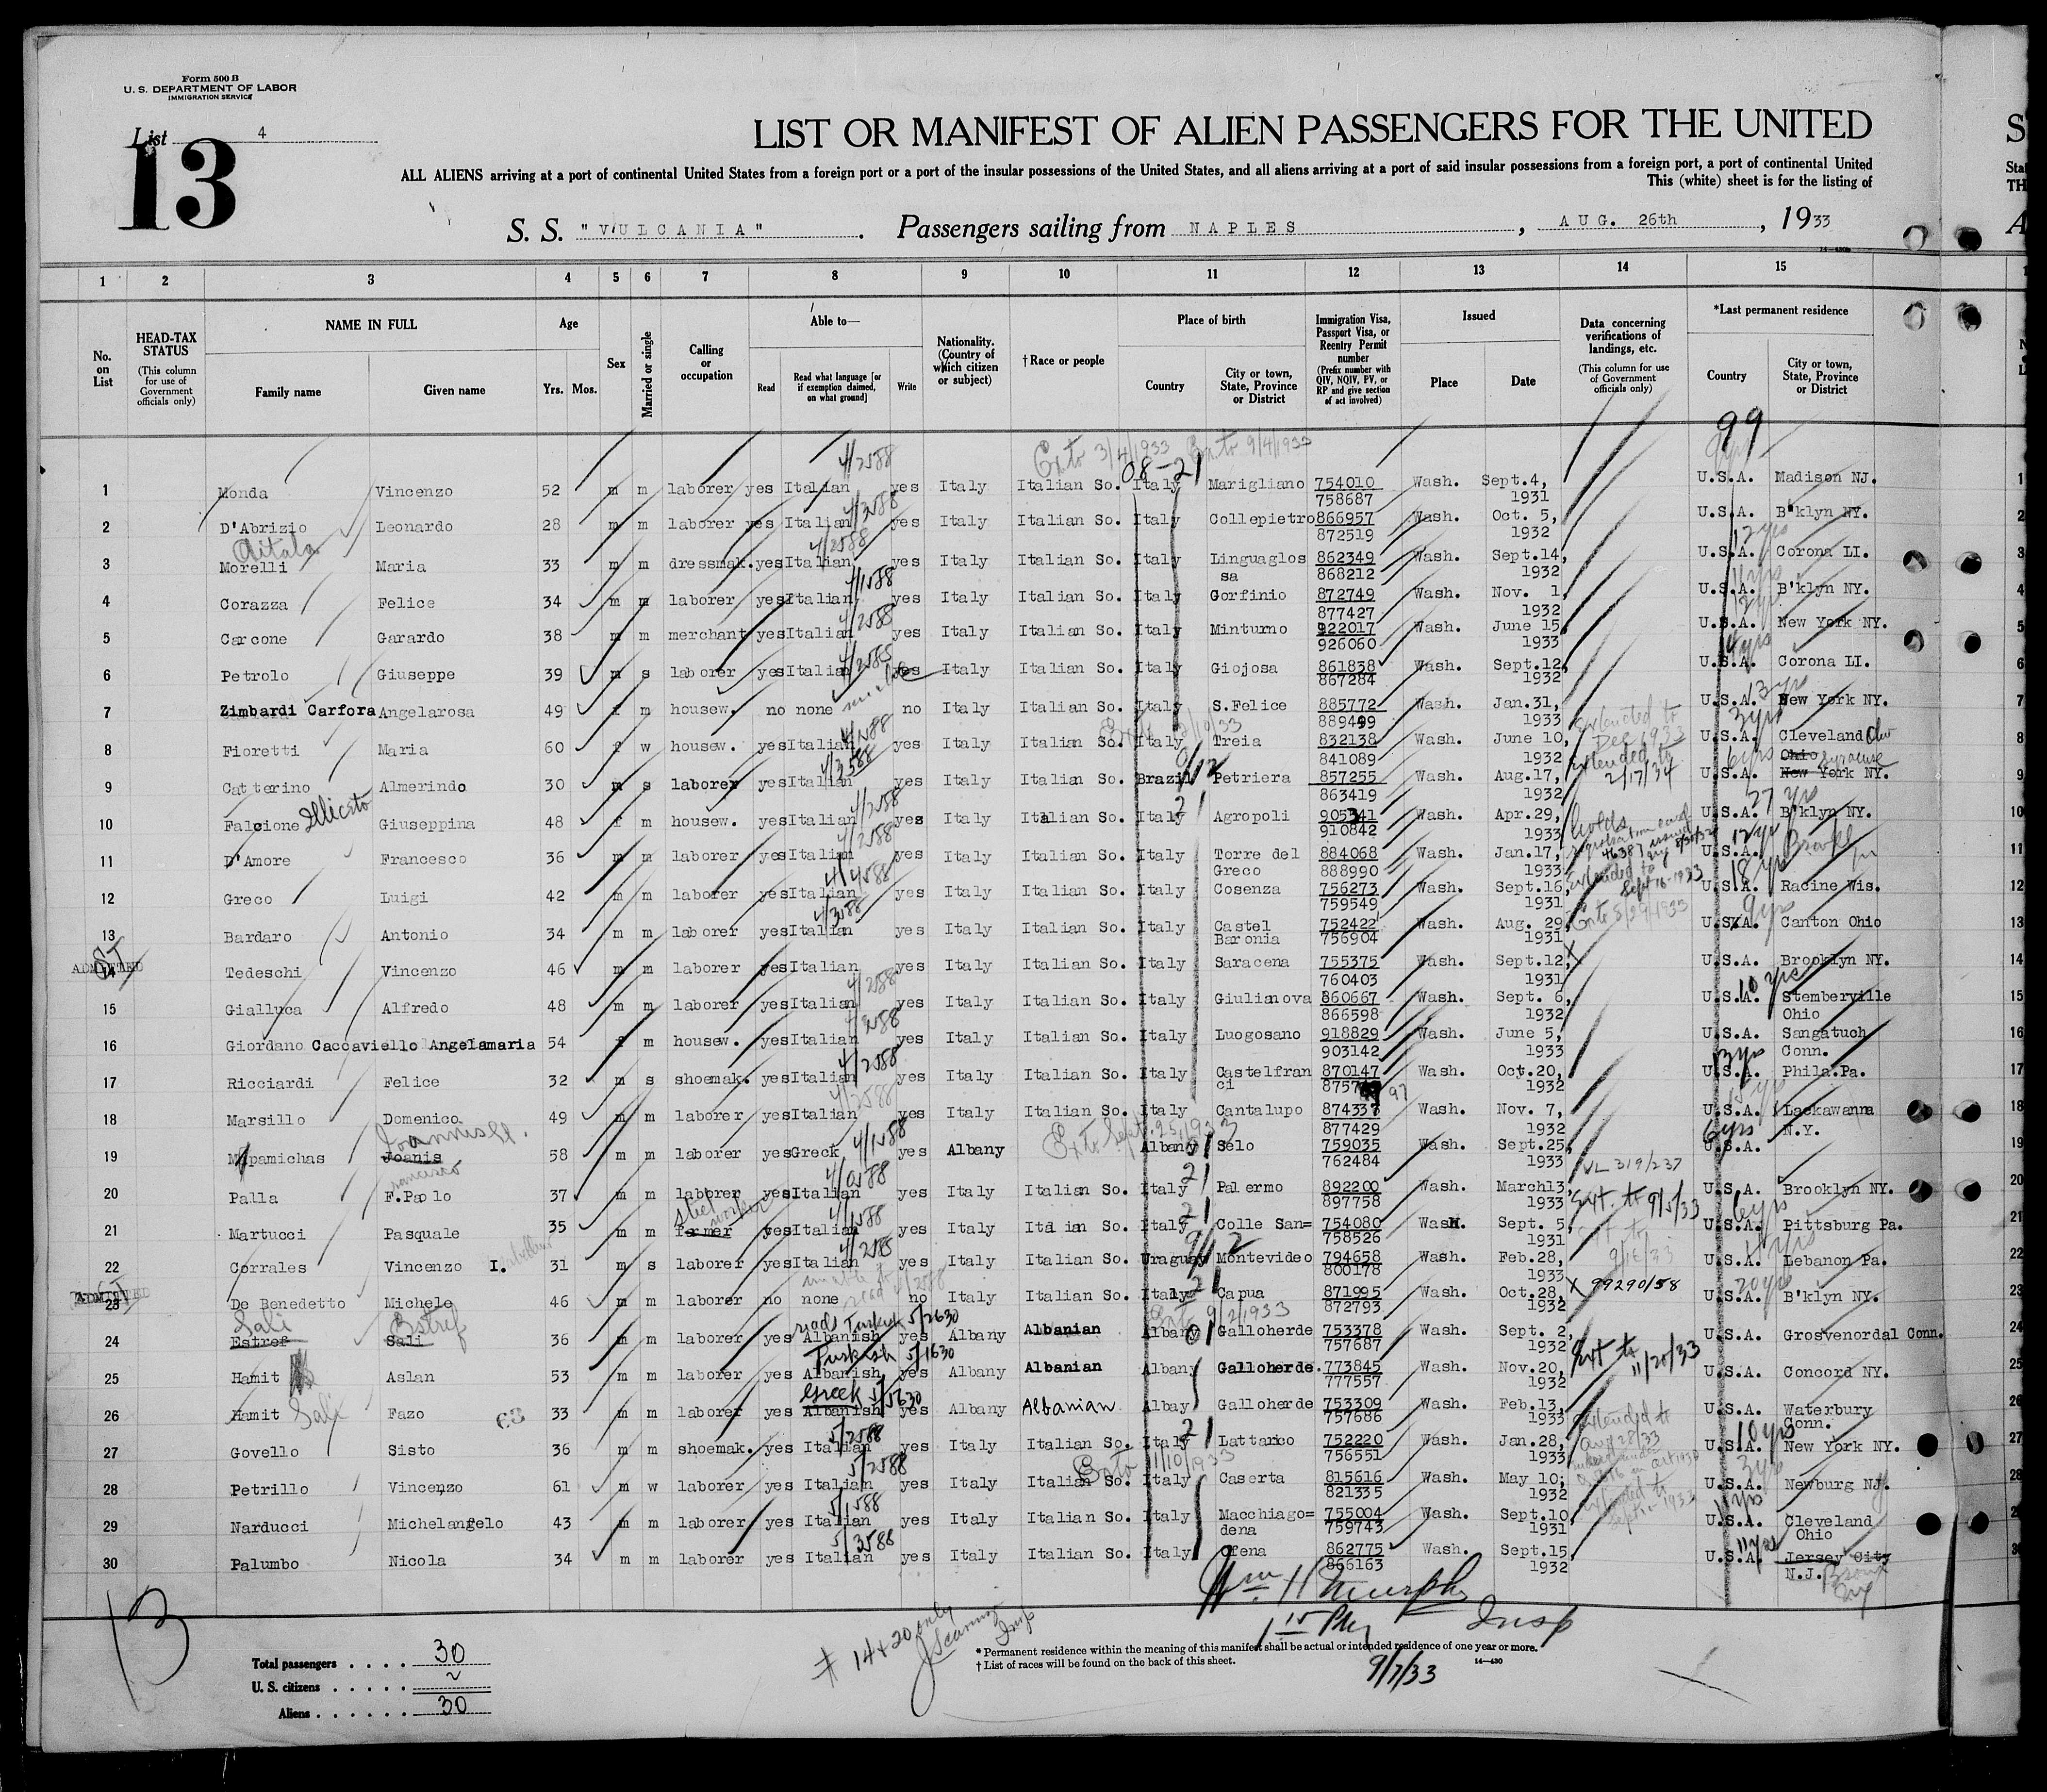 Form 500 B
U. S. DEPARTMENT OF LABOR
IMMIGRATION SERVICE
List 4
13
LIST OR MANIFEST OF ALIEN PASSENGERS FOR THE UNITED
ALL ALIENS arriving at a port of continental United States from a foreign port or a port of the insular possessions of the United States, and all aliens arriving at a port of said insular possessions from a foreign port, a port of continental United
This (white) sheet is for the listing of
S. S. "VULCANIA". Passengers sailing from NAPLES, AUG. 26th, 1933
1 2 3 4 5 6 7 8 9 10 11 12 13 14 15
No. on List
HEAD-TAX STATUS (This column for use of Government officials only)
NAME IN FULL Family name Given name
Age Yrs. Mos.
Sex
Married or single
Calling or occupation
Able to— Read Read what language [or if exemption claimed, on what ground] Write
Nationality. (Country of which citizen or subject)
†Race or people
Place of birth Country City or town, State, Province or District
Immigration Visa, Passport Visa, or Reentry Permit number (Prefix number with QIV, NQIV, PV, or RP and give section of act involved)
Issued Place Date
Data concerning verifications of landings, etc. (This column for use of Government officials only)
*Last permanent residence Country City or town, State, Province or District
99
4/2588
Ex to 3/4/1933 Ex to 9/4/1933
08-21
1 Monda Vincenzo 52 m m laborer yes Italian yes Italy Italian So. Italy Marigliano 754010 758687 Wash. Sept.4, 1931 U.S.A. Madison NJ.
2 D'Abrizio Leonardo 28 m m laborer yes Italian yes Italy Italian So. Italy Collepietro 866957 872519 Wash. Oct. 5, 1932 U.S.A. B'klyn NY.
Aitala
3 Morelli Maria 33 m m dressmak. yes Italian yes Italy Italian So. Italy Linguaglossa 862349 868212 Wash. Sept.14, 1932 U.S.A. Corona LI.
4 Corazza Felice 34 m m laborer yes Italian yes Italy Italian So. Italy Gorfinio 872749 877427 Wash. Nov. 1, 1932 U.S.A. B'klyn NY.
5 Carcone Garardo 38 m m merchant yes Italian yes Italy Italian So. Italy Minturno 922017 926060 Wash. June 15, 1933 U.S.A. New York NY.
6 Petrolo Giuseppe 39 m s laborer yes Italian yes Italy Italian So. Italy Giojosa 861838 867284 Wash. Sept.12, 1932 U.S.A. Corona LI.
7 Zimbardi Carfora Angelarosa 49 f m housew. no none no Italy Italian So. Italy S.Felice 885772 889499 Wash. Jan.31, 1933 U.S.A. New York NY.
8 Fioretti Maria 60 f w housew. yes Italian yes Italy Italian So. Italy Treia 832138 841089 Wash. June 10, 1932 U.S.A. Cleveland Ohio
9 Catterino Almerindo 30 m s laborer yes Italian yes Italy Italian So. Brazil Petriera 857255 863419 Wash. Aug.17, 1932 extended to 2/17/34 U.S.A. New York NY. Syracuse
10 Falcione Illiceto Giuseppina 48 f m housew. yes Italian yes Italy Italian So. Italy Agropoli 905341 910842 Wash. Apr.29, 1933 U.S.A. B'klyn NY.
11 D'Amore Francesco 36 m m laborer yes Italian yes Italy Italian So. Italy Torre del Greco 884068 888990 Wash. Jan.17, 1933 U.S.A.
12 Greco Luigi 42 m m laborer yes Italian yes Italy Italian So. Italy Cosenza 756273 759549 Wash. Sept.16, 1931 Extended to Sept 16-1933 U.S.A. Racine Wis.
13 Bardaro Antonio 34 m m laborer yes Italian yes Italy Italian So. Italy Castel Baronia 752422 756904 Wash. Aug. 29, 1931 U.S.A. Canton Ohio
ADMITTED
14 Tedeschi Vincenzo 46 m m laborer yes Italian yes Italy Italian So. Italy Saracena 755375 760403 Wash. Sept.12, 1931 U.S.A. Brooklyn NY.
15 Gialluca Alfredo 48 m m laborer yes Italian yes Italy Italian So. Italy Giulianova 860667 866598 Wash. Sept. 6, 1932 U.S.A. Stemberville Ohio
16 Giordano Caccaviello Angelamaria 54 f m housew. yes Italian yes Italy Italian So. Italy Luogosano 918829 903142 Wash. June 5, 1933 U.S.A. Sangatuch Conn.
17 Ricciardi Felice 32 m s shoemak. yes Italian yes Italy Italian So. Italy Castelfranci 870147 Wash. Oct.20, 1932 U.S.A. Phila.Pa.
18 Marsillo Domenico 49 m m laborer yes Italian yes Italy Italian So. Italy Cantalupo 874337 877429 Wash. Nov. 7, 1932 U.S.A. Lackawanna N.Y.
Ex to Sept. 25, 1933
19 Papamichas Joanis 58 m m laborer yes Greek yes Albany Albany Selo 759035 762484 Wash. Sept.25, 1933 U.S.A.
20 Palla F.Paolo 37 m m laborer yes Italian yes Italy Italian So. Italy Palermo 892200 897758 Wash. March13, 1933 VL 319/237 U.S.A. Brooklyn NY.
steel worker
21 Martucci Pasquale 35 m m farmer yes Italian yes Italy Italian So. Italy Colle San= 754080 758526 Wash. Sept. 5, 1931 Ext. to 9/5/33 U.S.A. Pittsburg Pa.
22 Corrales Vincenzo I. 31 m s laborer yes Italian yes Italy Italian So. Uraguay Montevideo 794658 800178 Wash. Feb.28, 1933 U.S.A. Lebanon Pa.
ADMITTED
23 De Benedetto Michele 46 m m laborer no none no Italy Italian So. Italy Capua 871995 872793 Wash. Oct.28, 1932 X 99290/58 U.S.A. B'klyn NY.
Sali Estref reads Turkish 5/2630 Ext. 9/2/1933
24 Estref Sali 36 m m laborer yes Albanish yes Albany Albanian Albany Galloherde 753378 757687 Wash. Sept. 2, 1932 U.S.A. Grosvenordal Conn.
Turkish 5/1630
25 Hamit Aslan 53 m m laborer yes Albanish yes Albany Albanian Albany Galloherde. 773845 777557 Wash. Nov.20, 1932 Ext to 11/20/33 U.S.A. Concord NY.
Greek 5/5630
26 Hamit Sali Fazo 33 m m laborer yes Albanish yes Albany Albanian Albay Galloherde 753309 757686 Wash. Feb.13, 1933 U.S.A. Waterbury Conn.
27 Govello Sisto 36 m m shoemak. yes Italian yes Italy Italian So. Italy Lattarico 752220 756551 Wash. Jan.28, 1933 U.S.A. New York NY.
28 Petrillo Vincenzo 61 m w laborer yes Italian yes Italy Italian So. Italy Caserta 815616 821335 Wash. May 10, 1932 U.S.A. Newburg NJ.
29 Narducci Michelangelo 43 m m laborer yes Italian yes Italy Italian So. Italy Macchiago= dena 755004 759743 Wash. Sept.10, 1931 U.S.A. Cleveland Ohio
30 Palumbo Nicola 34 m m laborer yes Italian yes Italy Italian So. Italy Ofena 862775 866163 Wash. Sept.15, 1932 U.S.A. Jersey City N.J. Bronx NY
Wm H Murphy Insp
13
# 14 & 20 only
9/7/33
Total passengers . . . . 30
U. S. citizens . . . . .
Aliens . . . . . . 30
* Permanent residence within the meaning of this manifest shall be actual or intended residence of one year or more.
† List of races will be found on the back of this sheet.
14—430